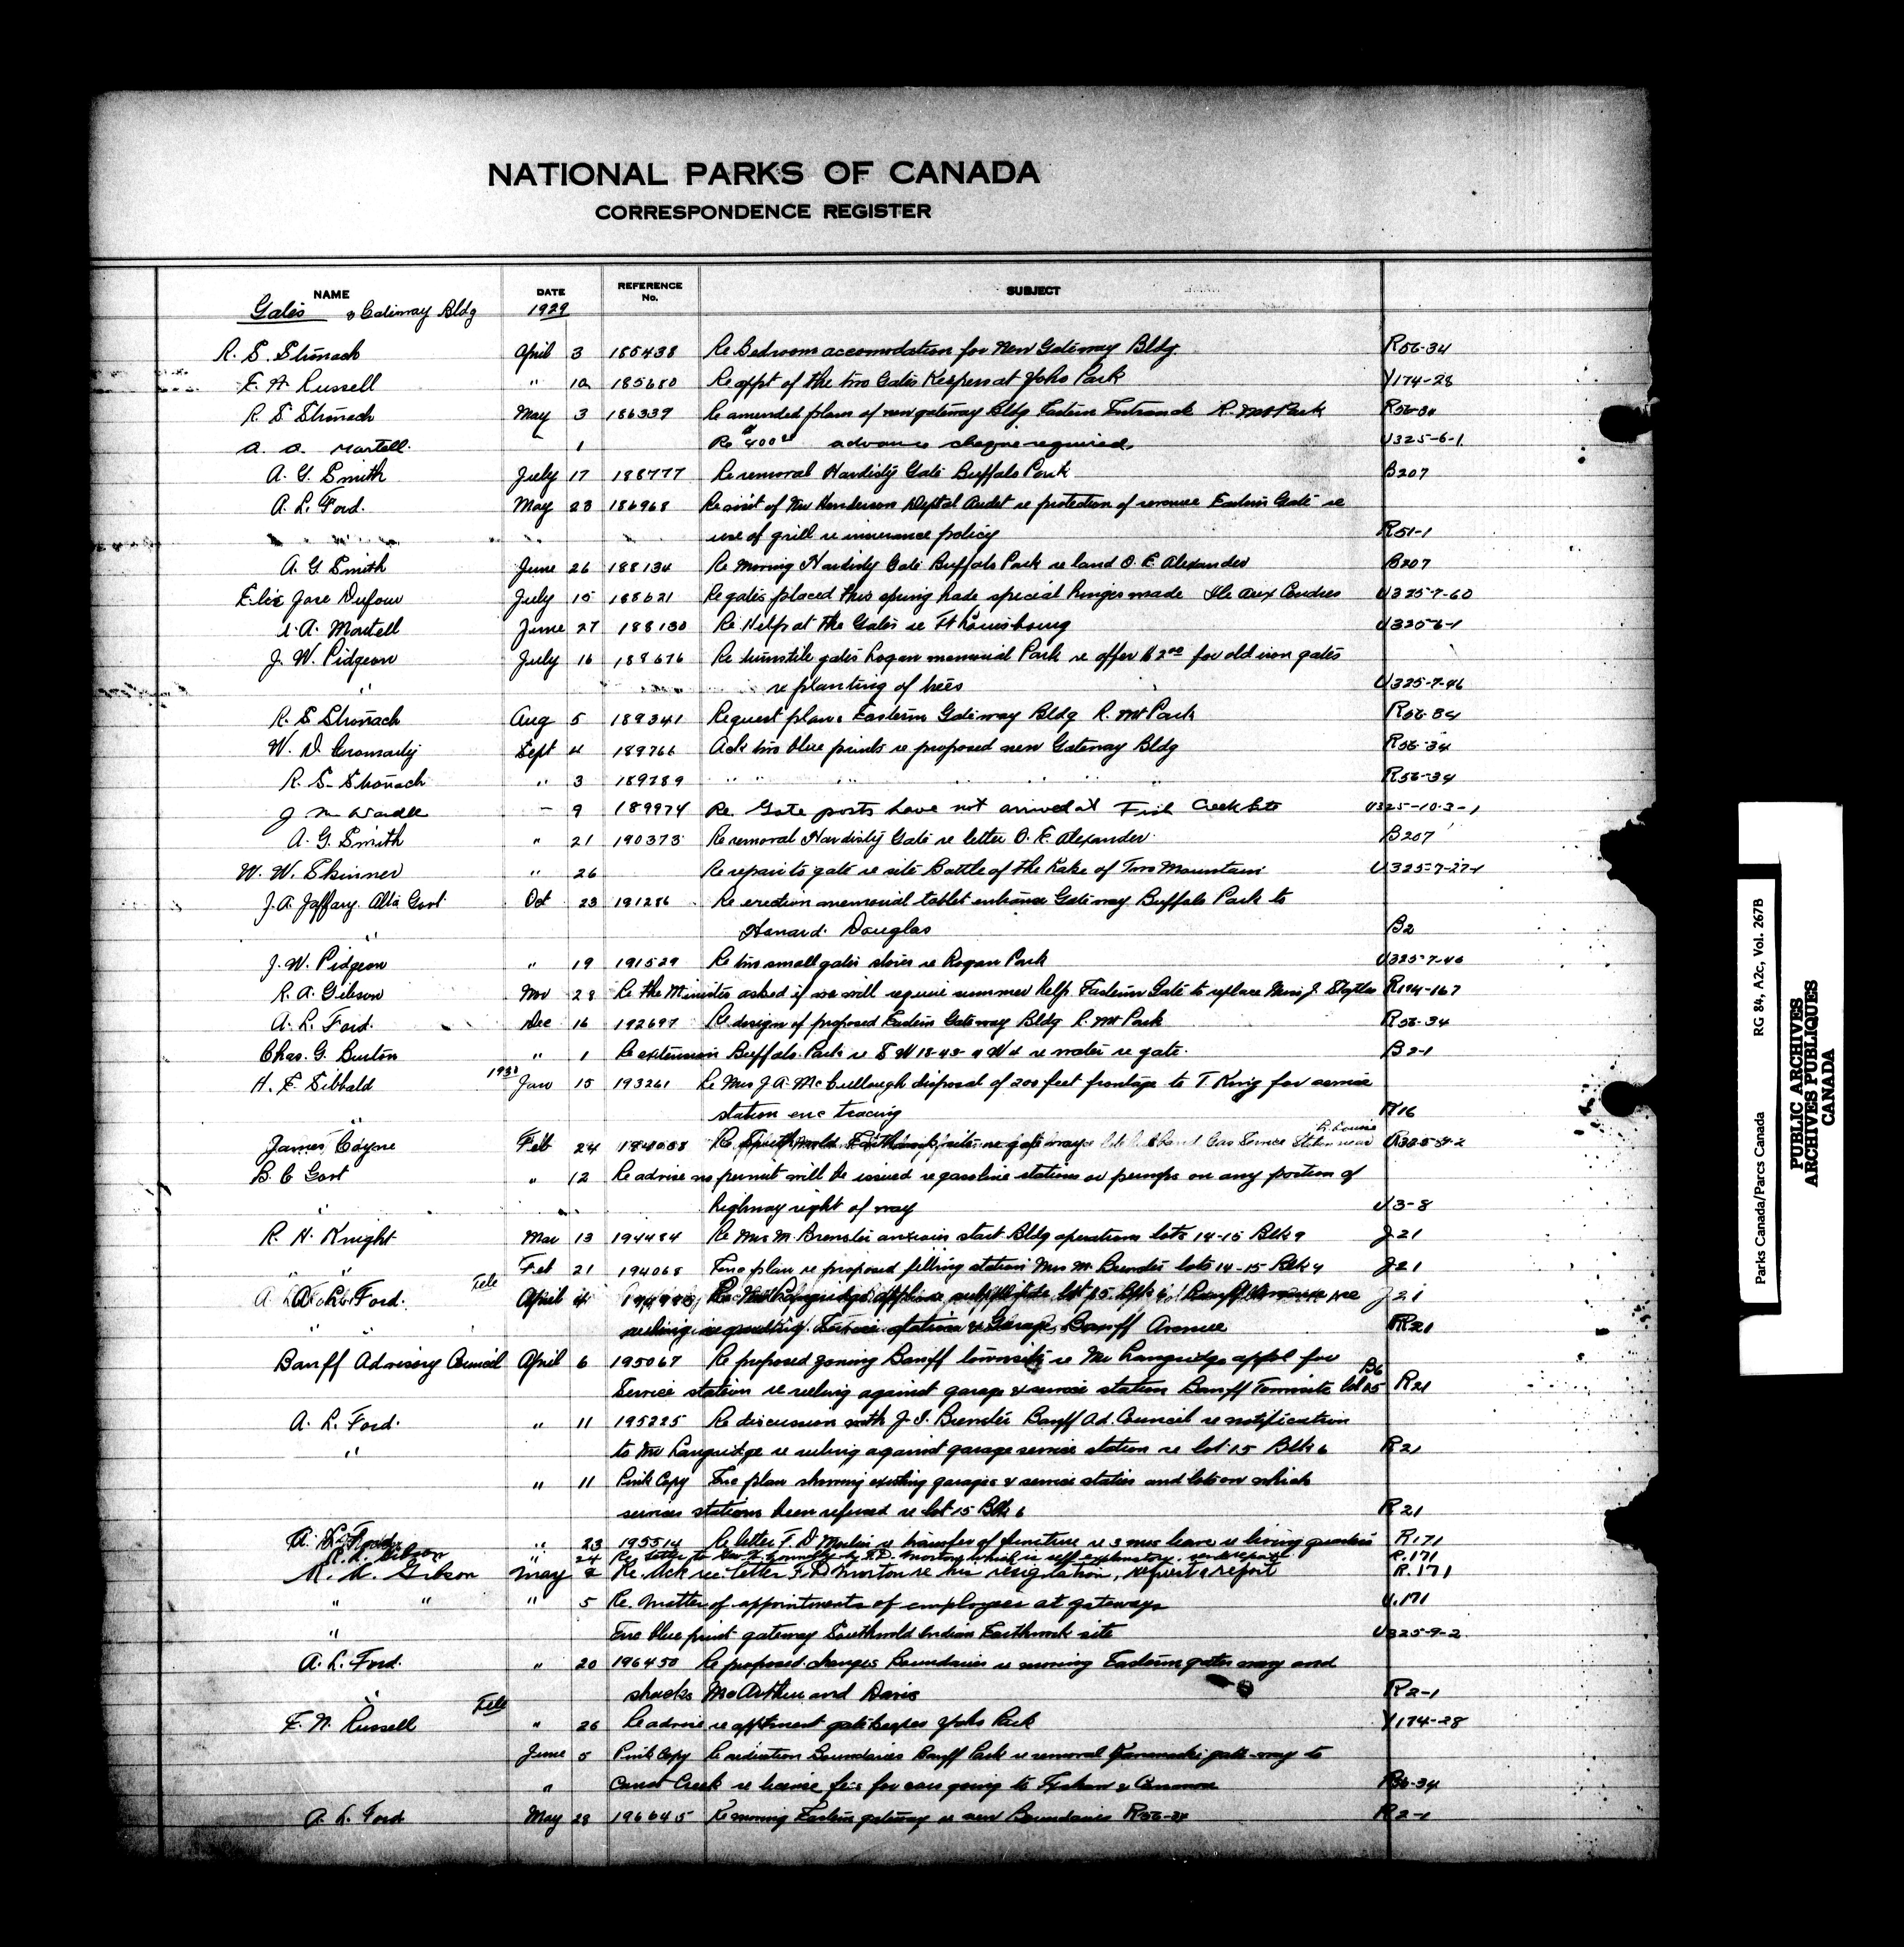 NATIONAL PARKS OF CANADA
CORRESPONDENCE REGISTER
NAME DATE REFERENCE No. SUBJECT
Gates & Gateway Bldg 1929
R. S. Stronach April 3 185438 Re Bedroom accomodation for New Gateway Bldg. R56-34
E. N. Russell " 10 185680 Re appt of the two Gates Keepers at Yoho Park Y174-28
R. S Stronach May 3 186339 Re amended plans of new gateway Bldg Eastern Entrance R. Mt Park R56-34
A. A. Martell. 1 Re $400 advance cheque required. U325-6-1
A. G. Smith July 17 188777 Re removal Hardisty Gate Buffalo Park B207
A. L. Ford. May 23 186968 Re visit of Mr Henderson Deptal Audit re protection of revenue Eastern Gate re
use of grill re insurance policy R51-1
A. G Smith June 26 188134 Re Moving Hardisty Gate Buffalo Park re land O. E. Alexander B207
Dufour July 15 188621 Re gates placed this spring had special hinges made Ile aux Coudres U325-7-60
A. Martell June 27 188130 Re Help at the Gates re Ft Louisbourg U3256-1
J. W. Pidgeon July 16 188676 Re turnstile gates Logan memorial Park re offer $2.00 for old iron gates
" re planting of trees U325-7-46
R. S Stronach Aug 5 189341 Request plans Eastern Gateway Bldg R. Mt Park R56-34
W. D Cromarty Sept 4 189766 Ack two blue prints re proposed new Gateway Bldg R56-34
R. S. Stronach " 3 189789 " " " " " " " R56-34
J M Wardle - 9 189974 Re. Gate posts have not arrived at Fish Creek U325-10-3-1
A. G. Smith " 21 190373 Re removal Hardisty Gate re letter O. E. Alexander. B207
W. W. Skinner " 26 Re repair to gate re site Battle of the Lake of Two Mountain U325-7-27-1
J. A. Jaffary Alta Govt. Oct 23 191286 Re erection memorial tablet entrance Gateway Buffalo Park to
" Howard Douglas B2
J. W. Pidgeon " 19 191529 Re two small gates stores re Logan Park U325-7-46
R. A. Gibson Nov 28 Re the Minister asked if we will require summer help Eastern Gate to replace Miss J. R174-167
A. L. Ford. Dec 16 192697 Re design of proposed Eastern Gateway Bldg R. Mt Park R56-34
Chas. G. Burton " 1 Re extension Buffalo Park re S W 18-43- 4 re water re gate. B2-1
H. E. Sibbald 1930 Jan 15 193261 Re Mrs J. A. McCullough disposal of 200 feet frontage to T. King for service
" station enc tracing R16
James Coyne Feb 24 Re Southwold Earthwork site re gateway Gas Service Station near L. Louise
B. C Govt " 12 Re advise no permit will be issued re gasoline stations or pumps on any portion of
" highway right of way U3-8
R. H. Knight Mar 13 194484 Re Mrs M. Brewster anxious start Bldg operations lots 14-15 Blk 9 J21
" " Feb 21 194068 Enc plan re proposed filling station Mrs M. Brewster lots 14-15- Blk 9 J21
A. L. Ford. Tele April 4 J21
" " ruling Service station & Garage Banff Avenue R21
Banff Advisory Council April 6 195067 Re proposed zoning Banff townsite re Mr Langridge appl for
Service station re ruling against garage & service station Banff Townsite lot 15 B6 R21
A. L. Ford. " 11 195225 Re discussion with J. I. Brewster Banff Ad. Council re notification
" to Mr Langridge re ruling against garage service station re lot 15 Blk 6 R21
" 11 Pink Copy Enc plan showing existing garages & service station and lots on which
service stations been refused re lot 15 Blk 6 R 21
23 195514 Re letter F. D Morton re transfer of furniture re 3 mos leave re living quarters R171
R. A. Gibson " 24 Re. Letter to by F. D. Morton, which is self explanatory. R.171
R. A. Gibson May 2 Re. Ack rec. letter F. D Morton re his resignation, request a report R.171
" " " 5 Re. Matter of appointments of employees at gateways U.171
" Enc blue print gateway Southwold Indian Earthwork site U325-9-2
A. L. Ford. " 20 196450 Re proposed changes Boundaries re moving Eastern gateway and
" shacks McArthur and Davis R2-1
E. N. Russell Tele " 26 Re advise re apptment gatekeeper Yoho Park Y174-28
June 5 Pink Copy Re Boundaries Banff Park re removal Kananaskis gate-way to
" Carrot Creek re license fees for cars going to Exshaw & Canmore R56-34
A. L. Ford May 28 196645 Re moving Eastern gateway re new Boundaries R56-34 R2-1
Parks Canada/Parcs Canada RG 84, A2c, Vol. 267B
PUBLIC ARCHIVES
ARCHIVES PUBLIQUES
CANADA